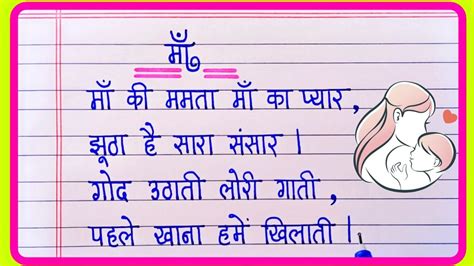 माँ
माँ की ममता माँ का प्यार,
झूठा है सारा संसार।
गोद उठाती लोरी गाती,
पहले खाना हमें खिलाती।